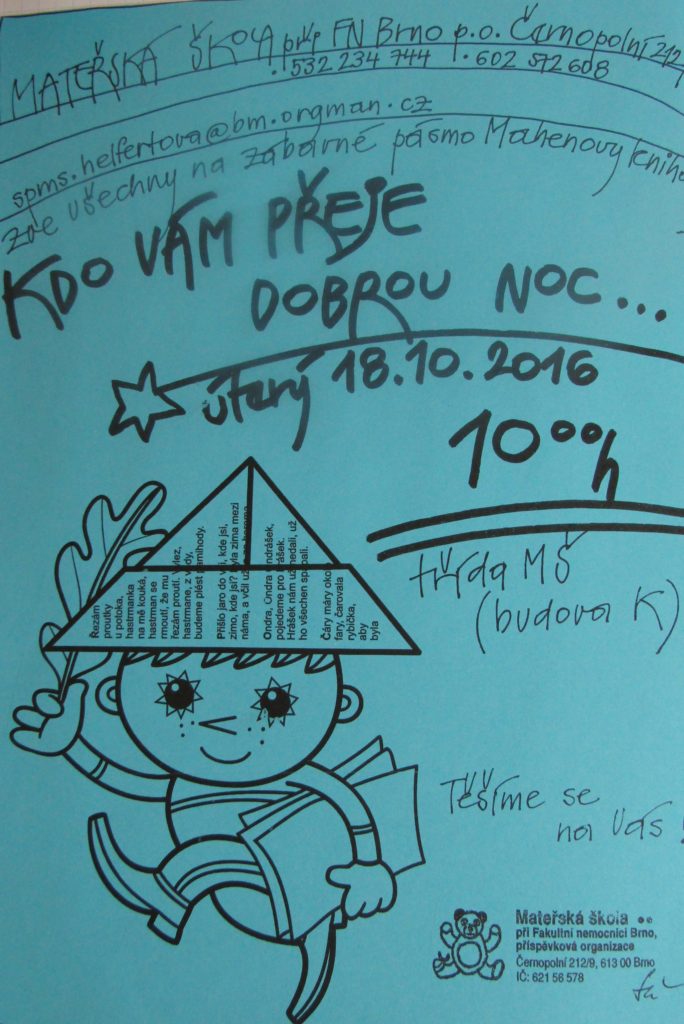 MATEŘSKÁ ŠKOLA při FN Brno p.o. Černopolní 212
532 234 744 · 602 572 608
spms.helfertova@bm.orgman.cz
zve všechny na zábavné pásmo Mahenovy kniho
KDO VÁM PŘEJE
DOBROU NOC...
úterý 18.10.2016
10⁰⁰h
třída MŠ
(budova K)
Řežám
proutky
u potoka,
hastrmanka
na mě kouká,
hastrman se
rmoutí, že mu
řezám proutí.
hastrmane, z
budeme plést pamihody.
Přišlo jaro do
kde jsi,
zimo, kde jsi?
yla zima mezi
náma, a včil už
Ondra, Ondra
ndrášek,
pojedeme pro
hrášek.
Hrášek nám už nedali, už
ho všechen
Čáry máry
fary, čarovala
rybička,
aby
byla
Těšíme se
na Vás!
Mateřská škola
při Fakultní nemocnici Brno,
příspěvková organizace
Černopolní 212/9, 613 00 Brno
IČ: 621 56 578